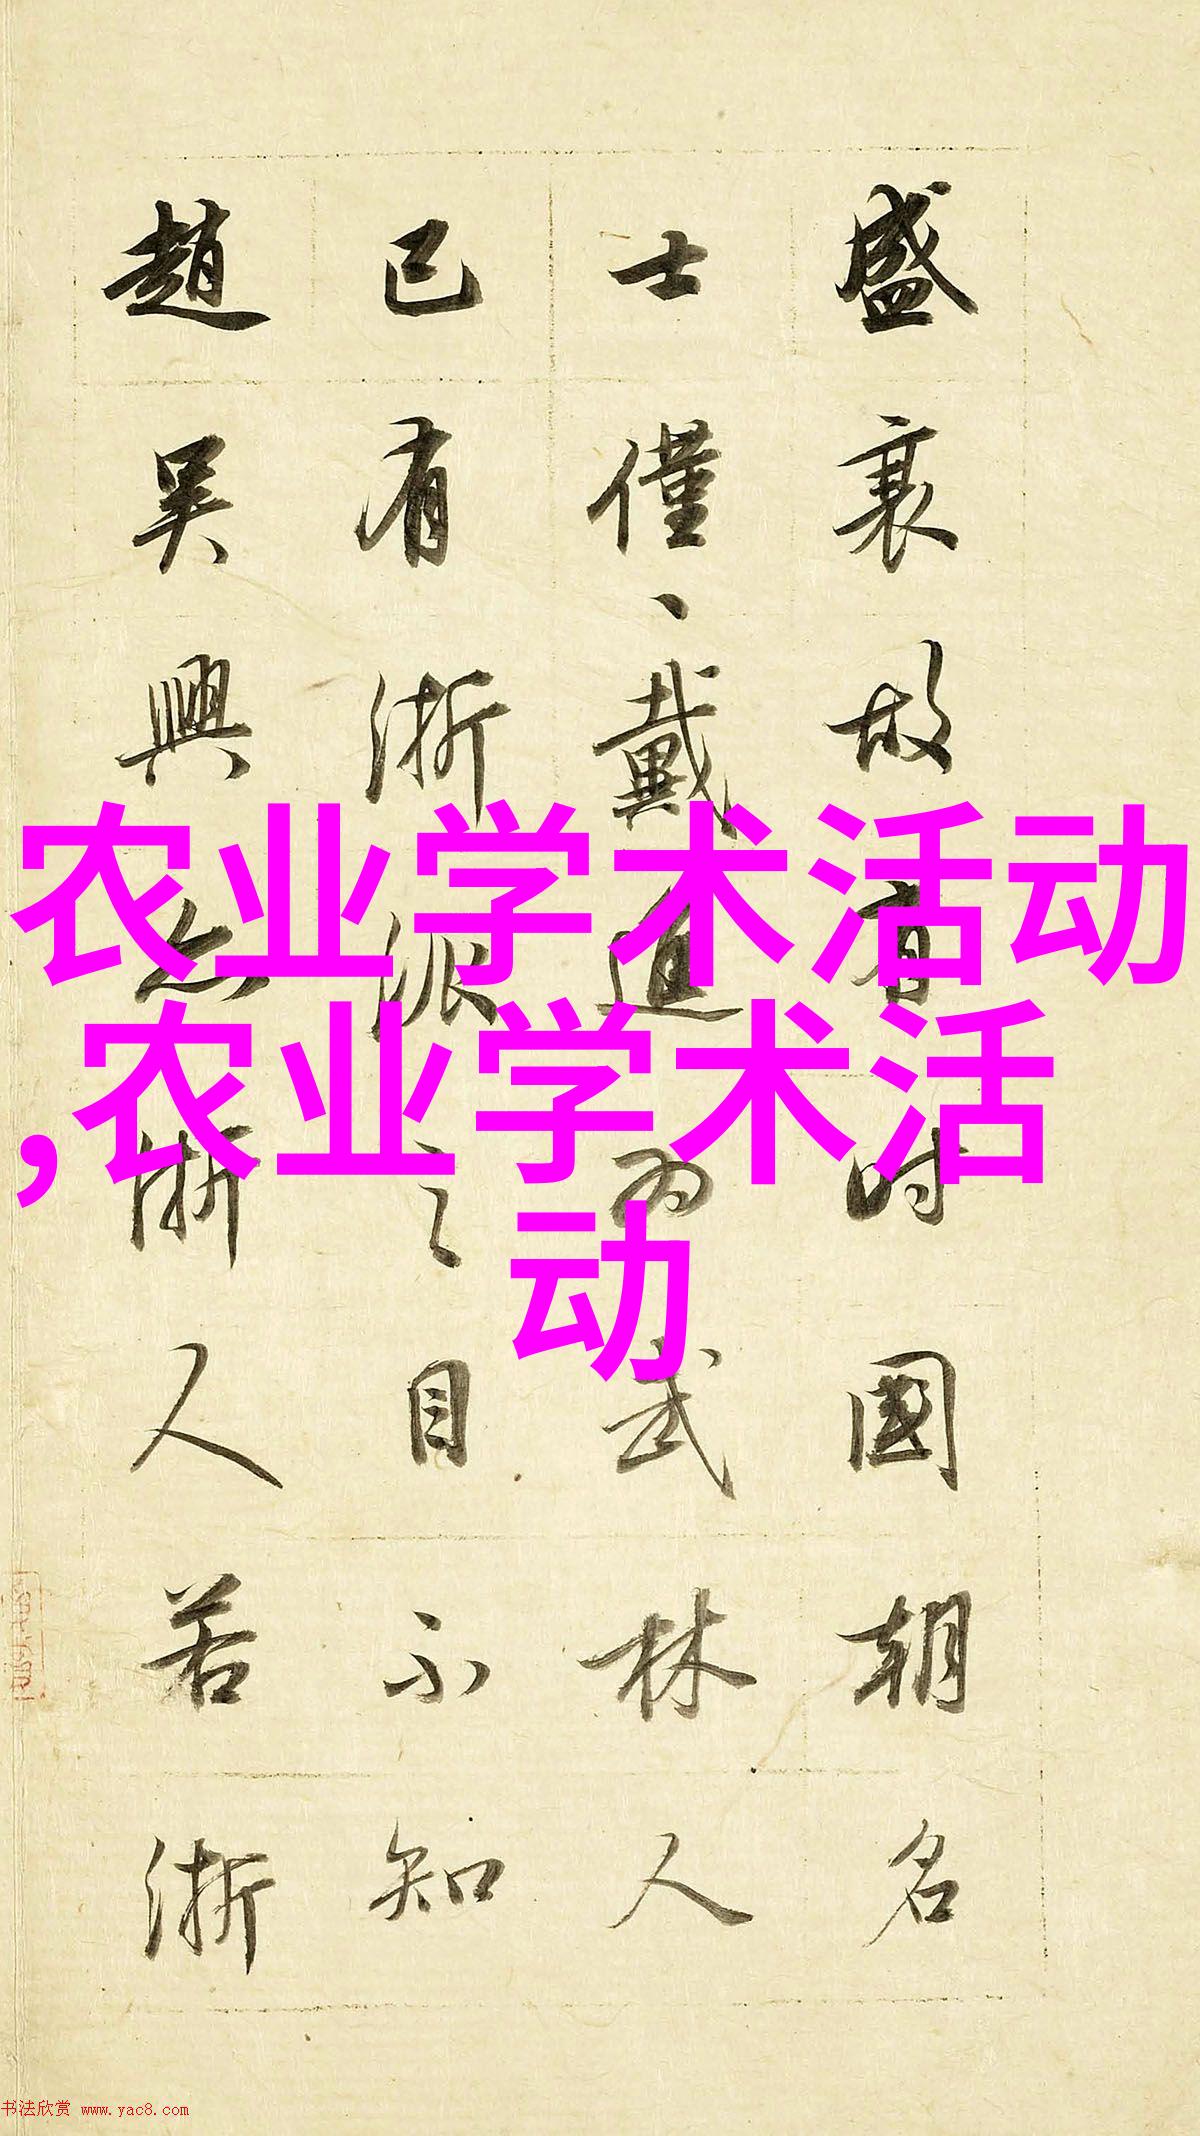 盛衰故有時國朝名
士僅、戴進為武林人
已有浙派之目不知
趙吳興亦浙人若浙
农业学术活动
,农业学术活
动
书法欣赏 www.yac8.com